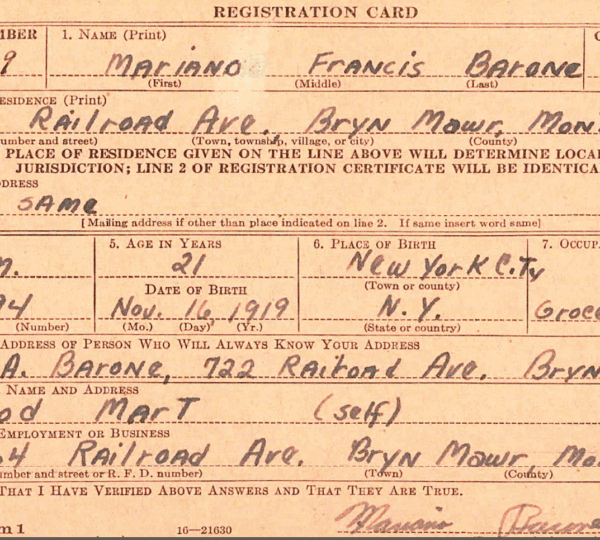 REGISTRATION CARD
MBER 1. NAME (Print)
9 Mariano Francis Barone
(First) (Middle) (Last)
ESIDENCE (Print)
Railroad Ave., Bryn Mawr, Mon
umber and street) (Town, township, village, or city) (County)
PLACE OF RESIDENCE GIVEN ON THE LINE ABOVE WILL DETERMINE LOCA
JURISDICTION; LINE 2 OF REGISTRATION CERTIFICATE WILL BE IDENTICA
DDRESS
SAME
[Mailing address if other than place indicated on line 2. If same insert word same]
5. AGE IN YEARS 6. PLACE OF BIRTH 7. OCCUP
21 New York City
DATE OF BIRTH (Town or county)
94 Nov. 16, 1919 N.Y. Groce
(Number) (Mo.) (Day) (Yr.) (State or country)
ADDRESS OF PERSON WHO WILL ALWAYS KNOW YOUR ADDRESS
A. Barone, 722 Railroad Ave. Bryn
NAME AND ADDRESS
od Mart (self)
EMPLOYMENT OR BUSINESS
4 Railroad Ave. Bryn Mawr Mo
umber and street or R. F. D. number) (Town) (County)
THAT I HAVE VERIFIED ABOVE ANSWERS AND THAT THEY ARE TRUE.
m 1 16—21630 Mariano Barone